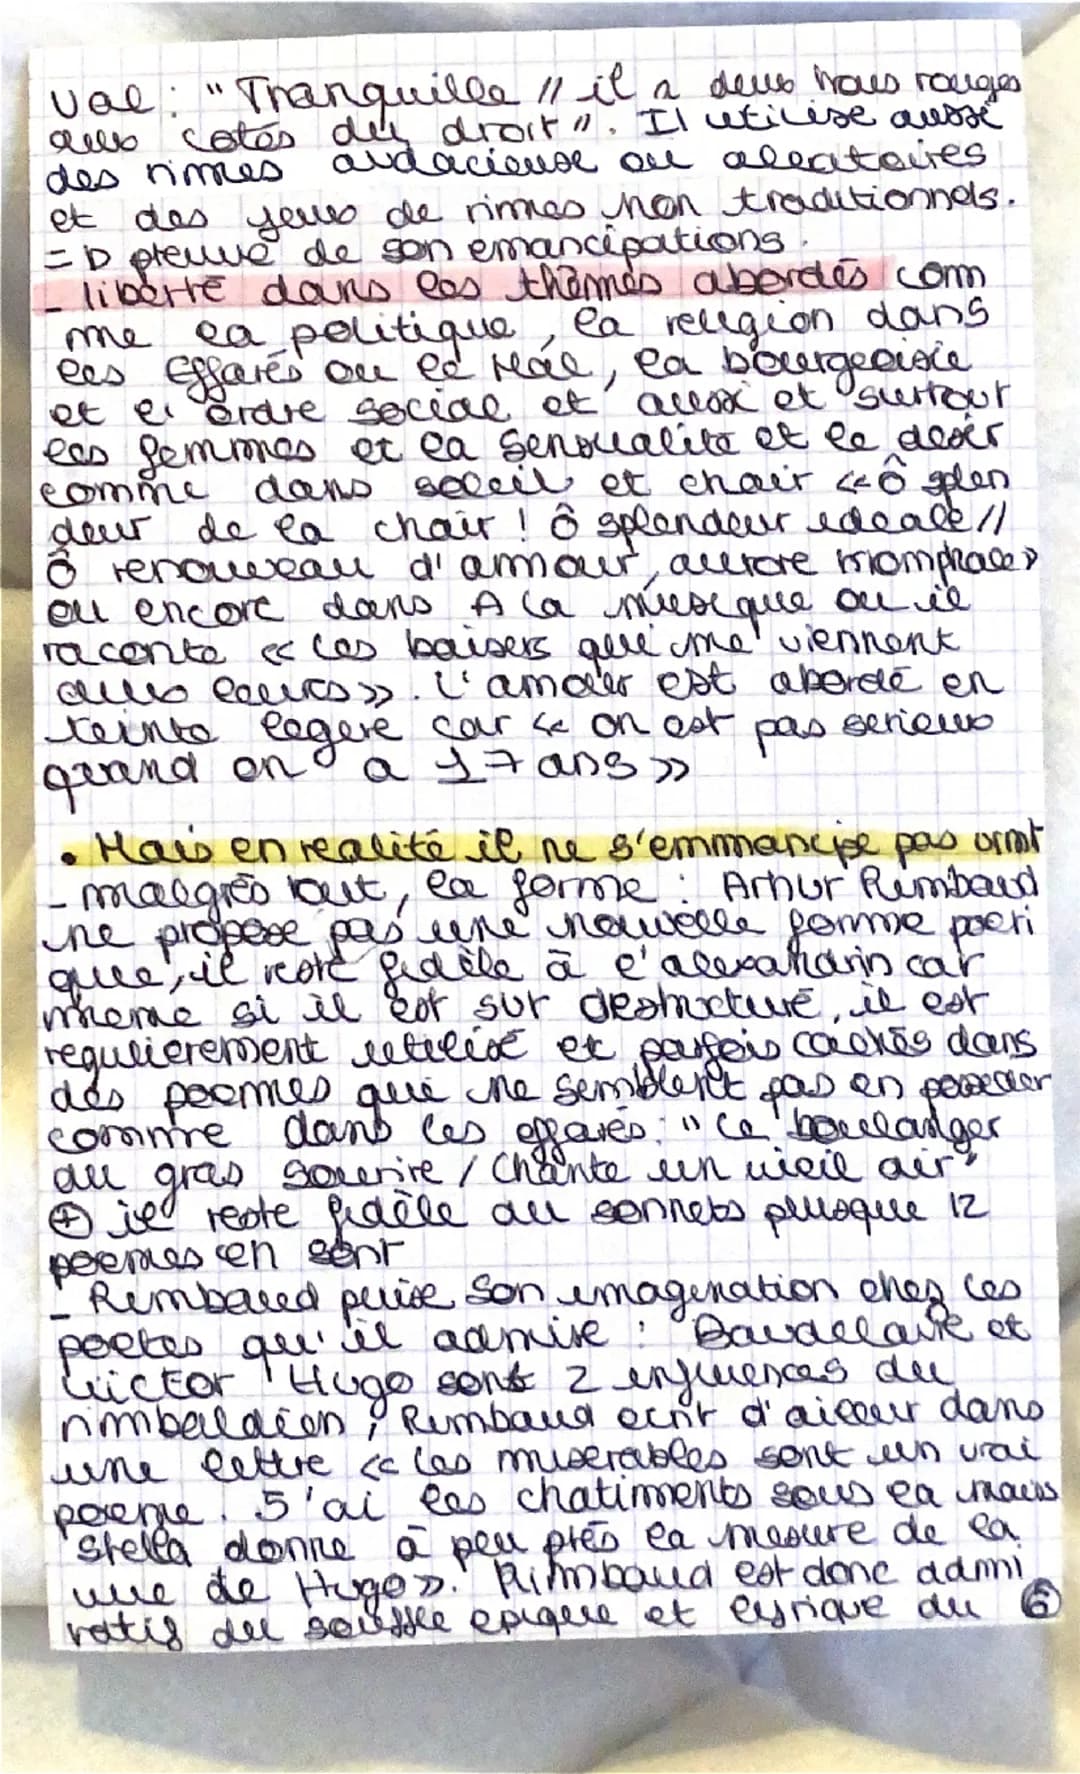 val : "Tranquille // il a deux trous rouges
aux cotés du droit". Il utilise aussi
des rimes audacieuse ou aleatoires
et des jeux de rimes non traditionnels.
=D preuve de son emancipations.
- liberté dans les thèmes abordés com
me la politique, la religion dans
les Effarés ou le Mal, la bourgeoisie
et l'ordre social et aussi et surtout
les femmes et la sensualité et le desir
comme dans soleil et chair «Ô splen
deur de la chair ! Ô splendeur ideale //
Ô renouveau d'amour, aurore triomphale»
ou encore dans A la musique ou il
raconte « les baisers qui me viennent
aux levres». L'amour est abordé en
teinte legere car « on est pas serieux
quand on a 17 ans »
• Mais en realité il ne s'emmancipe pas vrmt
- malgrés tout, la forme : Arthur Rimbaud
ne propose pas une nouvelle forme poeti
que, il reste fidèle à l'alexandrin car
meme si il est sur destructuré, il est
regulierement utilisé et parfois cachés dans
des poemes qui ne semblent pas en posseder
comme dans les effarés : "Le boulanger
au gras sourire / Chante un vieil air"
⊕ il reste fidèle au sonnets puisque 12
poemes en sont
- Rimbaud puise son imagination chez les
poetes qu'il admire : Baudelaire et
Victor Hugo sont 2 influences du
rimbaldien ; Rimbaud ecrit d'aileur dans
une lettre « les miserables sont un vrai
poeme. J'ai les chatiments sous la main
Stella donne à peu près la mesure de la
vue de Hugo». Rimbaud est donc admi
ratif du souffle epique et lyrique du ⑥